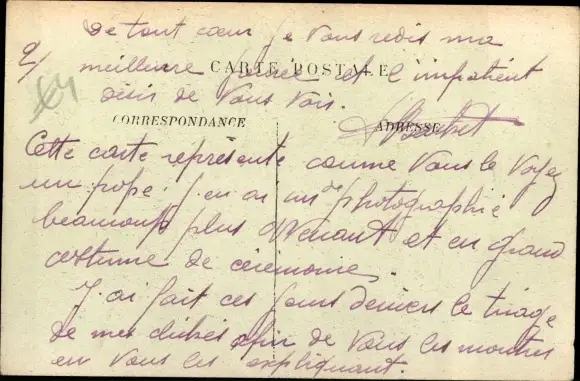 De tout cœur je vous redis ma
2/
meilleure pensée et l'impatient
CARTE POSTALE
désir de vous voir.
CORRESPONDANCE
ADRESSE
Cette carte représente comme vous le voyez
un pope. J'en ai un photographié
beaucoup plus et en grand
costume de cérémonie.
J'ai fait ces jours derniers le triage
de mes clichés afin de vous les montrer
en vous les expliquant.